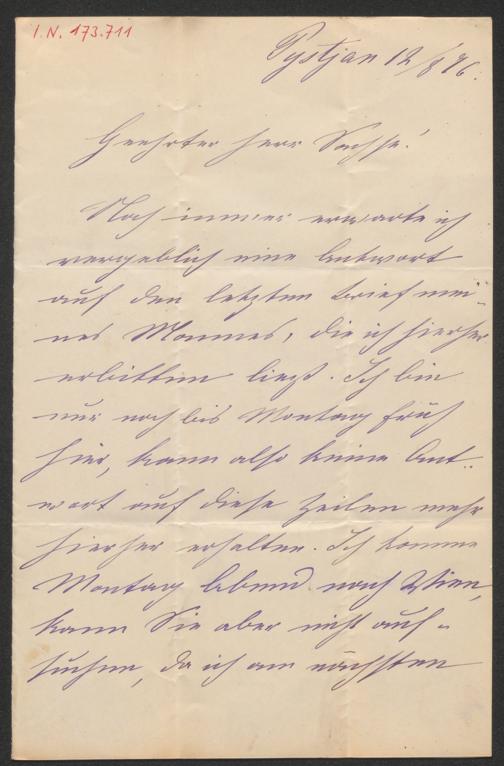 I.N. 173.711
Pystjan 12/8 96.
Geehrter Herr Sachse!
Noch immer erwarte ich
vergeblich eine Antwort
auf den letzten Brief mei-
nes Mannes, die ich hierher
erbitten ließ. Ich bin
nur noch bis Montag früh
hier, kann also keine Ant-
wort auf diese Zeilen mehr
hierher erhalten. Ich komme
Montag Abend nach Wien,
kann Sie aber nicht auf-
suchen, da ich am nächsten